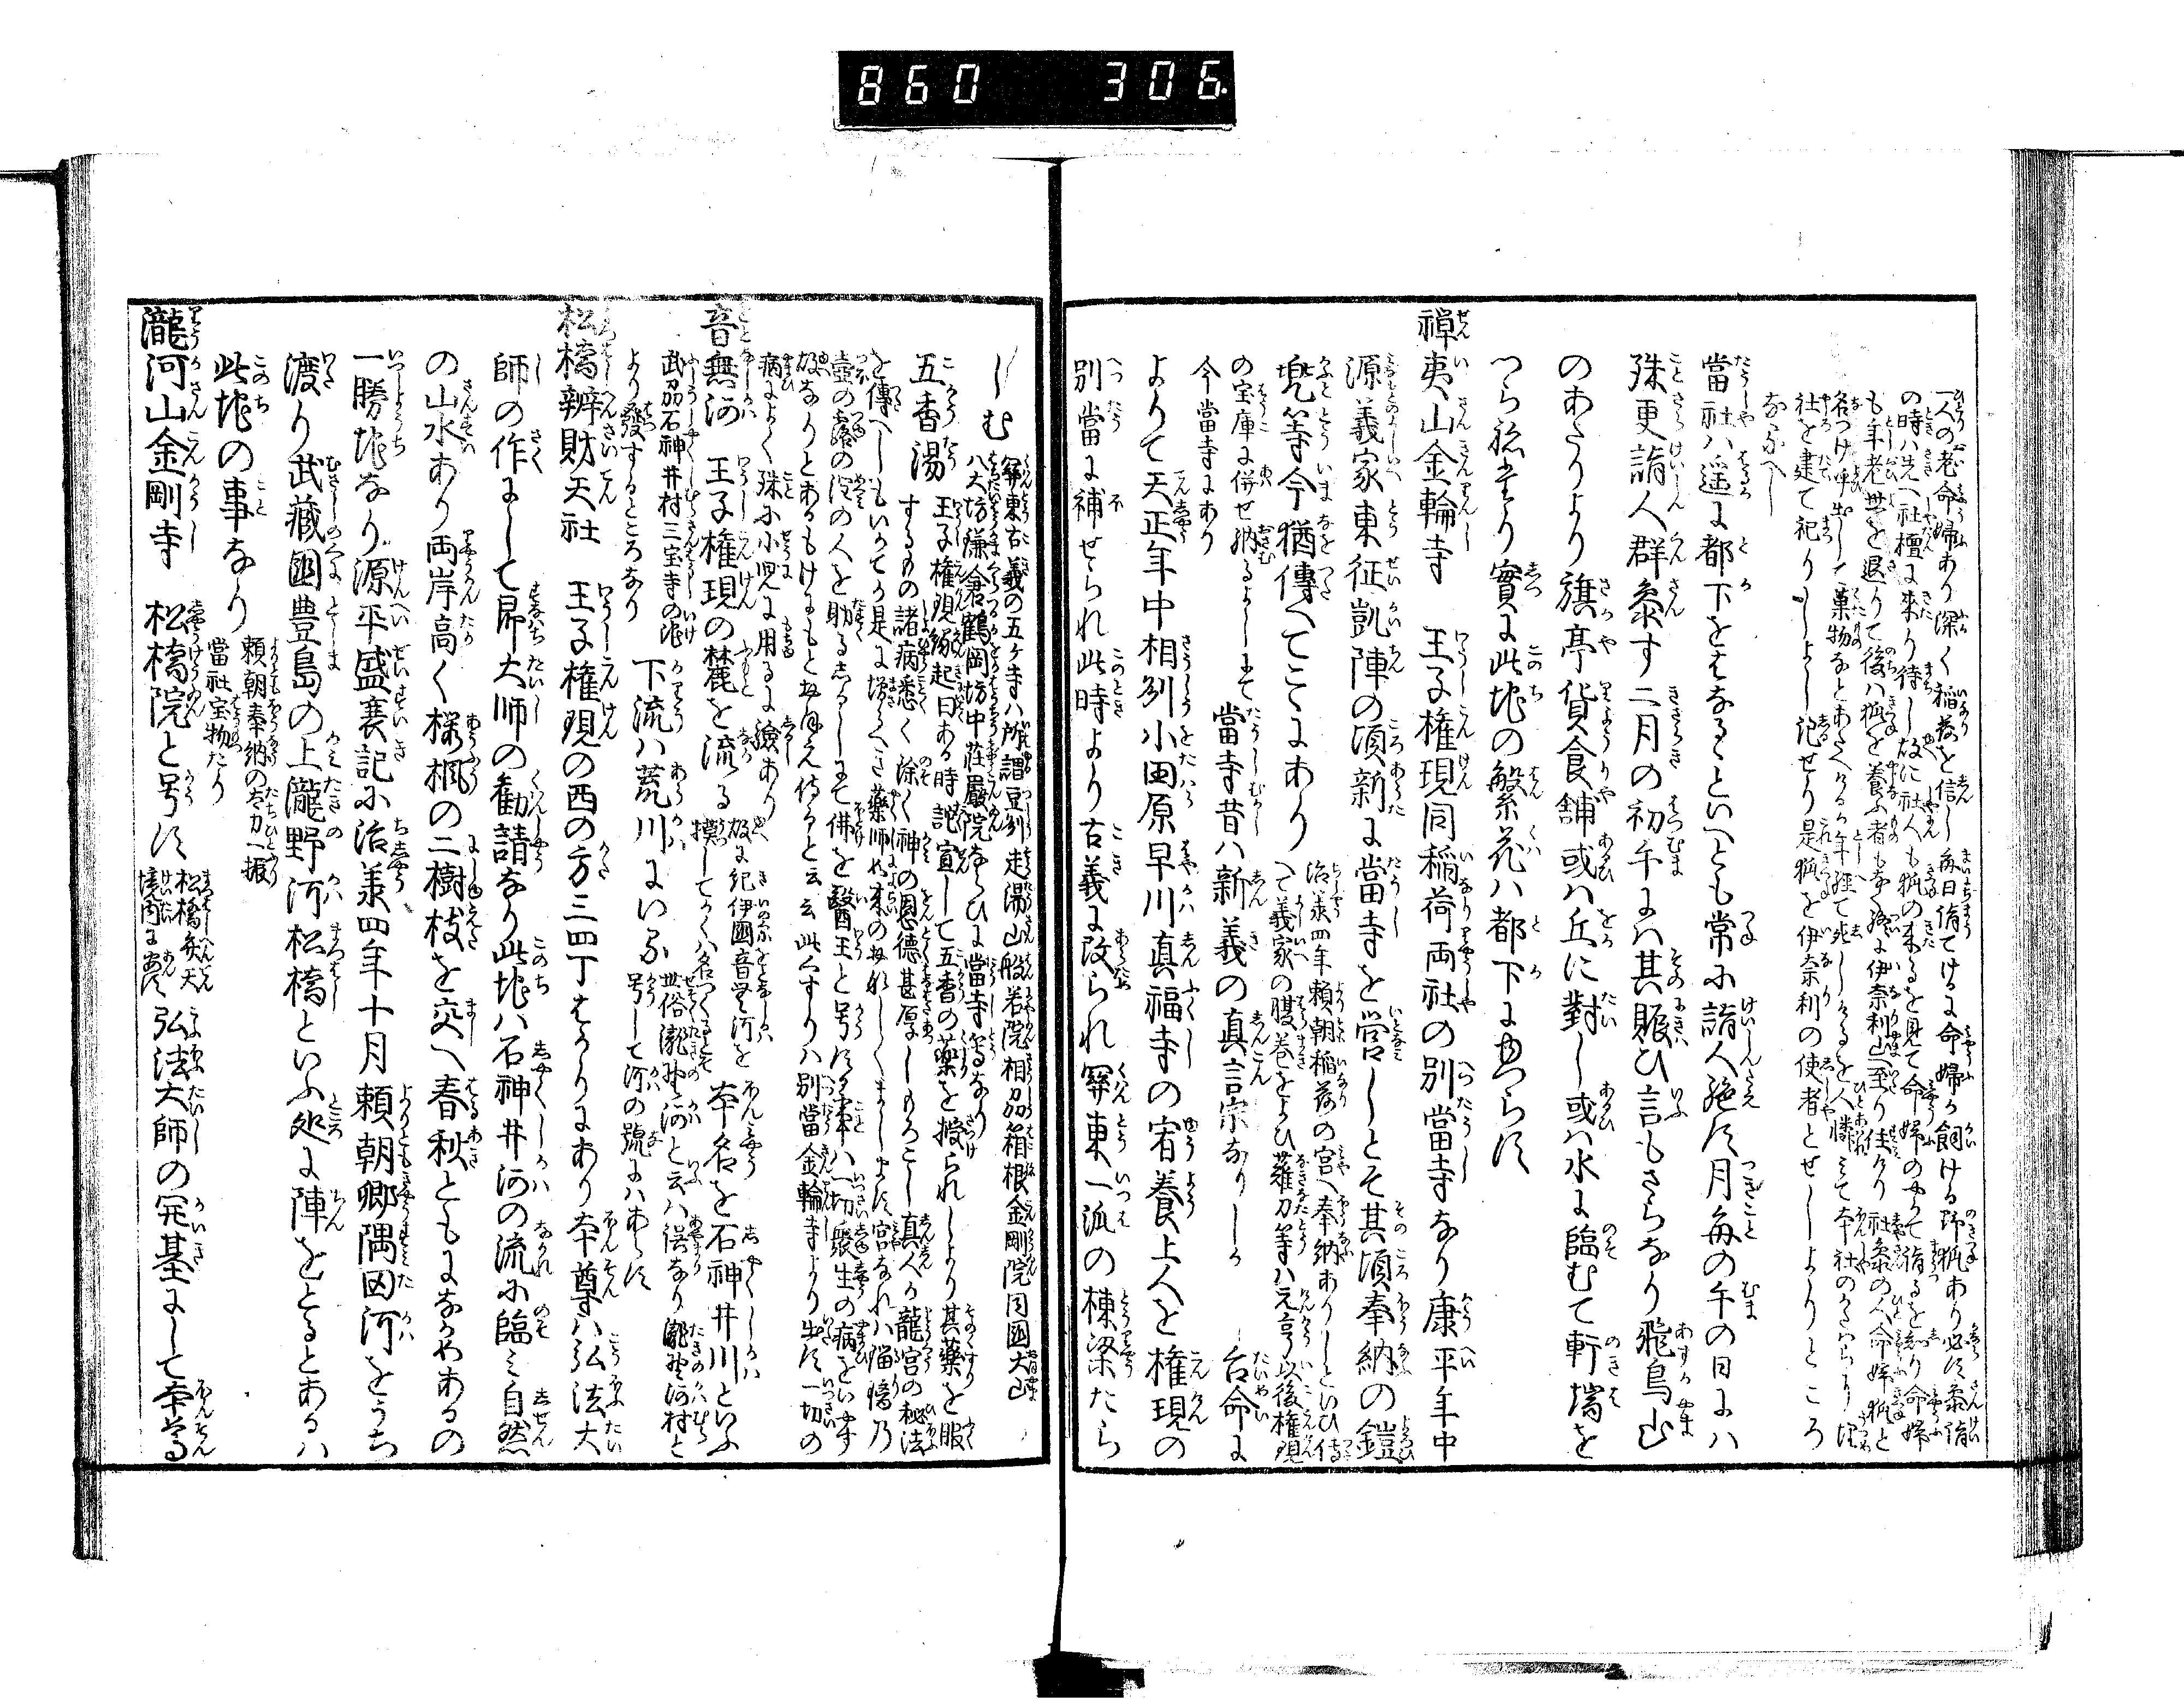 860 306
一人の老命婦あり深く稲荷を信し毎日詣てけるに命婦か飼ける野狐あり必す参詣
の時ハ先へ社檀に来り待し故に社人も狐の来るを見て命婦のやかて詣るを知り命婦
も年老世を退りて後ハ狐を養ふ者もなく終に伊奈利山に至り住り社参の人命婦狐と
名つけ呼出して菓物なとあたへける年経て死しけるを人憐みて本社のかたはらに埋
社を建て祀りしよし記せり是狐を伊奈利の使者とせしよりところ
なるへし
當社ハ遥に都下をはなるゝといへとも常に詣人絶す月毎の午の日にハ
殊更詣人群参す二月の初午にハ其賑ひ言もさらなり飛鳥山
のあたりより旗亭貨食舗或ハ丘に對し或ハ水に臨むて軒端を
つらねたり實に此地の繁花ハ都下にゆつらす
禅夷山金輪寺 王子権現同稲荷両社の別當寺なり康平年中
源義家東征凱陣の頃新に當寺を営しとそ其頃奉納の鎧
兜等今猶傳へてこゝにあり
治承四年頼朝稲荷の宮へ奉納ありしといひ傳
へて義家の腹巻をよひ薙刀等ハ元亨以後権現
の宝庫に併せ納るよしにて
今當寺にあり
當寺昔ハ新義の真言宗なりしか 台命に
よりて天正年中相刕小田原早川真福寺の宥養上人を権現の
別當に補せられ此時より古義に改られ関東一派の棟梁たら
しむ
関東古義の五ヶ寺ハ所謂豆刕走湯山般若院相刕箱根金剛院同國大山
八大坊鎌倉鶴岡坊中荘嚴院ならひに當寺等なり
五香湯
王子権現縁起曰ある時託宣して五香の薬を授られしより其薬を服
するもの諸病悉く除く神の恩徳甚厚しもろこし真人か龍宮の秘法
を傳へしもいかてか是に増るへき薬師如来の
壺の薬の
人を助るしるしにて佛を醫王と号す本ハ一切衆生の病をいやす
故なりとあるもけにもとおほえ侍ると云云此くすりハ別當金輪寺より出す一切の
病によく殊に小児に用るに験あり
音無河 王子権現の麓を流る
故に紀伊國音無河を
摸してかくハ名つくるとそ
本名を石神井川といふ
武刕石神井村三宝寺の池
より發するところなり
下流ハ荒川にいる
世俗瀧野河と云ハ誤なり瀧野河村と
号して河の號にハあらす
松橋辨財天社 王子権現の西の方三四丁はかりにあり本尊ハ弘法大
師の作にして即大師の勸請なり此地ハ石神井河の流に臨み自然
の山水あり両岸高く桜楓の二樹枝を交へ春秋ともにながめあるの
一勝地なり源平盛衰記に治承四年十月頼朝卿隅田河をうち
渡り武藏國豊島の上瀧野河松橋といふ処に陣をとるとあるハ
此地の事なり
頼朝奉納の太刀一振
當社宝物たり
瀧河山金剛寺 松橋院と号す
松橋弁天
境内に安す
弘法大師の開基にして本尊